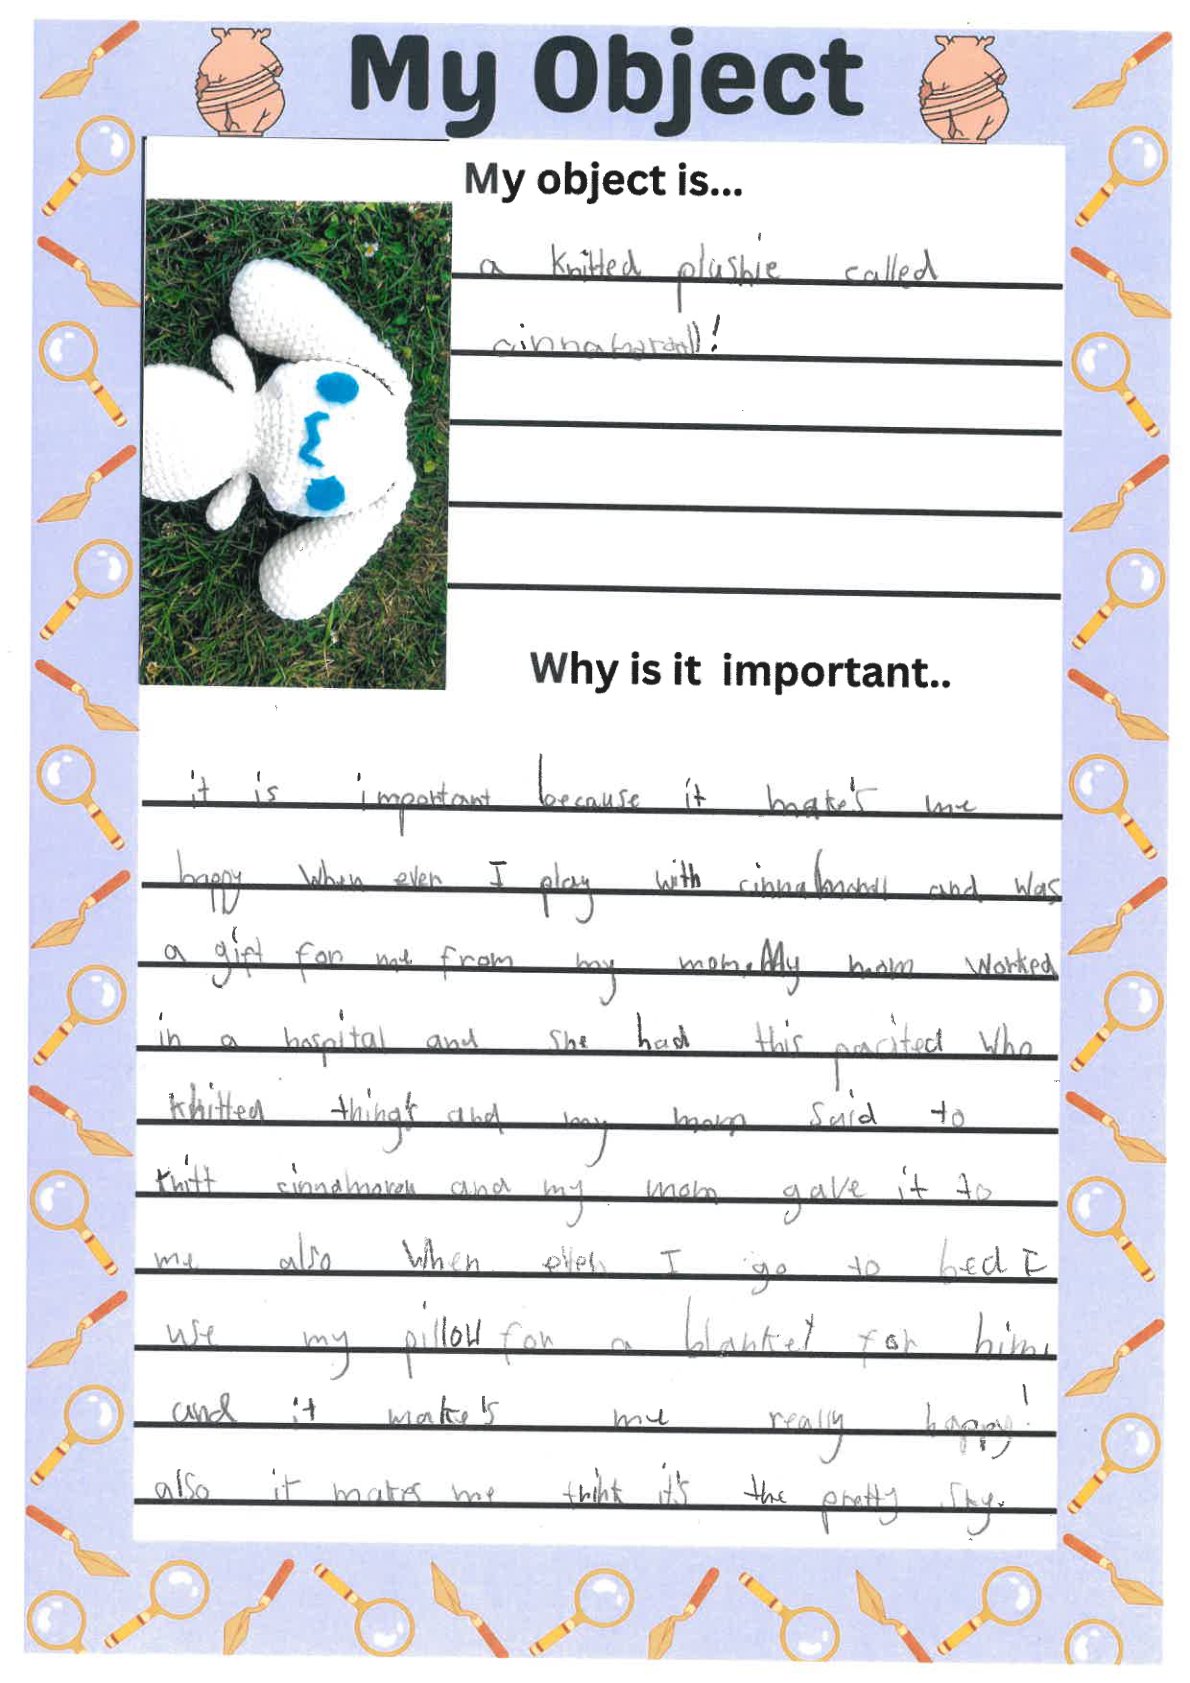 My Object
My object is...
a knitted plushie called
cinnamoroll!
Why is it important..
it is important because it make's me
happy when ever I play with and was
a gift for me from my mom. My mom worked
in a hospital and she had this pacited who
knitted thing's and my mom said to
knitt and my mom gave it to
me also when ever I go to bed I
use my pillow for a blanket for him
and it make's me really happy!
also it makes me think it's the pretty sky.